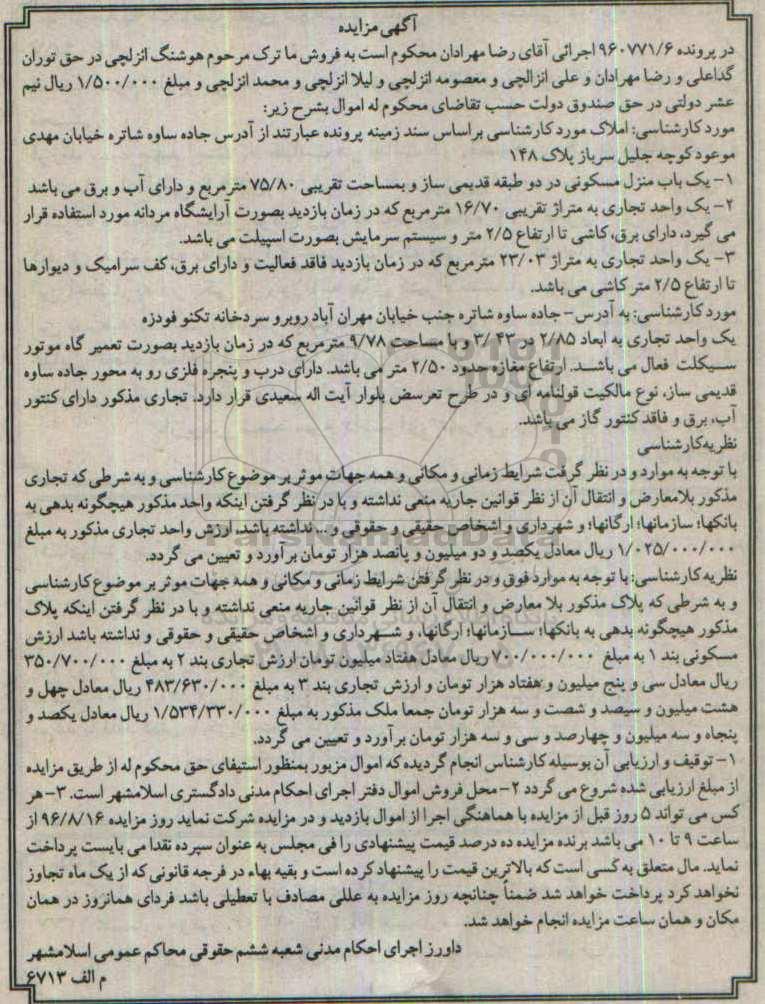 آگهی مزایده
در پرونده ۹۶۰۷۷۱/۶ اجرائی آقای رضا مهرادان محکوم است به فروش ما ترک مرحوم هوشنگ انزلچی در حق توران
گداعلی و رضا مهرادان و علی انزالچی و معصومه انزلچی و لیلا انزلچی و محمد انزلچی و مبلغ ۱/۵۰۰/۰۰۰ ریال نیم
عشر دولتی در حق صندوق دولت حسب تقاضای محکوم له اموال بشرح زیر:
مورد کارشناسی: املاک مورد کارشناسی براساس سند زمینه پرونده عبارتند از آدرس جاده ساوه شاتره خیابان مهدی
موعود کوچه جلیل سرباز پلاک ۱۴۸
۱- یک باب منزل مسکونی در دو طبقه قدیمی ساز و بمساحت تقریبی ۷۵/۸۰ مترمربع و دارای آب و برق می باشد
۲- یک واحد تجاری به متراژ تقریبی ۱۶/۷۰ مترمربع که در زمان بازدید بصورت آرایشگاه مردانه مورد استفاده قرار
می گیرد، دارای برق، کاشی تا ارتفاع ۲/۵ متر و سیستم سرمایش بصورت اسپیلت می باشد.
۳- یک واحد تجاری به متراژ ۲۳/۰۳ مترمربع که در زمان بازدید فاقد فعالیت و دارای برق، کف سرامیک و دیوارها
تا ارتفاع ۲/۵ متر کاشی می باشد.
مورد کارشناسی: به آدرس- جاده ساوه شاتره جنب خیابان مهران آباد روبرو سردخانه تکنو فودزه
یک واحد تجاری به ابعاد ۲/۸۵ در ۳/۴۳ و با مساحت ۹/۷۸ مترمربع که در زمان بازدید بصورت تعمیر گاه موتور
سیکلت فعال می باشد. ارتفاع مغازه حدود ۲/۵۰ متر می باشد. دارای درب و پنجره فلزی رو به محور جاده ساوه
قدیمی ساز، نوع مالکیت قولنامه ای و در طرح تعرسض بلوار آیت اله سعیدی قرار دارد. تجاری مذکور دارای کنتور
آب، برق و فاقد کنتور گاز می باشد.
نظریه کارشناسی
با توجه به موارد و در نظر گرفت شرایط زمانی و مکانی و همه جهات موثر بر موضوع کارشناسی و به شرطی که تجاری
مذکور بلامعارض و انتقال آن از نظر قوانین جاریه منعی نداشته و با در نظر گرفتن اینکه واحد مذکور هیچگونه بدهی به
بانکها؛ سازمانها؛ ارگانها؛ و شهرداری و اشخاص حقیقی و حقوقی و... نداشته باشد. ارزش واحد تجاری مذکور به مبلغ
۱/۰۲۵/۰۰۰/۰۰۰ ریال معادل یکصد و دو میلیون و پانصد هزار تومان برآورد و تعیین می گردد.
نظریه کارشناسی: با توجه به موارد فوق و در نظر گرفتن شرایط زمانی و مکانی و همه جهات موثر بر موضوع کارشناسی
و به شرطی که پلاک مذکور بلا معارض و انتقال آن از نظر قوانین جاریه منعی نداشته و با در نظر گرفتن اینکه پلاک
مذکور هیچگونه بدهی به بانکها؛ سازمانها؛ ارگانها، و شهرداری و اشخاص حقیقی و حقوقی و نداشته باشد ارزش
مسکونی بند ۱ به مبلغ ۷۰۰/۰۰۰/۰۰۰ ریال معادل هفتاد میلیون تومان ارزش تجاری بند ۲ به مبلغ ۳۵۰/۷۰۰/۰۰۰
ریال معادل سی و پنج میلیون و هفتاد هزار تومان و ارزش تجاری بند ۳ به مبلغ ۴۸۳/۶۳۰/۰۰۰ ریال معادل چهل و
هشت میلیون و سیصد و شصت و سه هزار تومان جمعا ملک مذکور به مبلغ ۱/۵۳۴/۳۳۰/۰۰۰ ریال معادل یکصد و
پنجاه و سه میلیون و چهارصد و سی و سه هزار تومان برآورد و تعیین می گردد.
۱- توقیف و ارزیابی آن بوسیله کارشناس انجام گردیده که اموال مزبور بمنظور استیفای حق محکوم له از طریق مزایده
از مبلغ ارزیابی شده شروع می گردد ۲- محل فروش اموال دفتر اجرای احکام مدنی دادگستری اسلامشهر است. ۳- هر
کس می تواند ۵ روز قبل از مزایده با هماهنگی اجرا از اموال بازدید و در مزایده شرکت نماید روز مزایده ۹۶/۸/۱۶ از
ساعت ۹ تا ۱۰ می باشد برنده مزایده ده درصد قیمت پیشنهادی را فی مجلس به عنوان سپرده نقدا می بایست پرداخت
نماید. مال متعلق به کسی است که بالاترین قیمت را پیشنهاد کرده است و بقیه بهاء در فرجه قانونی که از یک ماه تجاوز
نخواهد کرد پرداخت خواهد شد ضمناً چنانچه روز مزایده به عللی مصادف با تعطیلی باشد فردای همانروز در همان
مکان و همان ساعت مزایده انجام خواهد شد.
داورز اجرای احکام مدنی شعبه ششم حقوقی محاکم عمومی اسلامشهر
م الف ۶۷۱۳